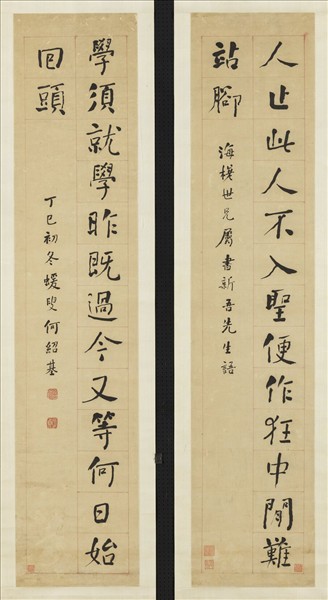 人止此人不入聖便作狂中間難
站腳
海楼世兄屬書新吾先生語
學須就學昨既過今又等何日始
回頭
丁巳初冬蝯叟何紹基